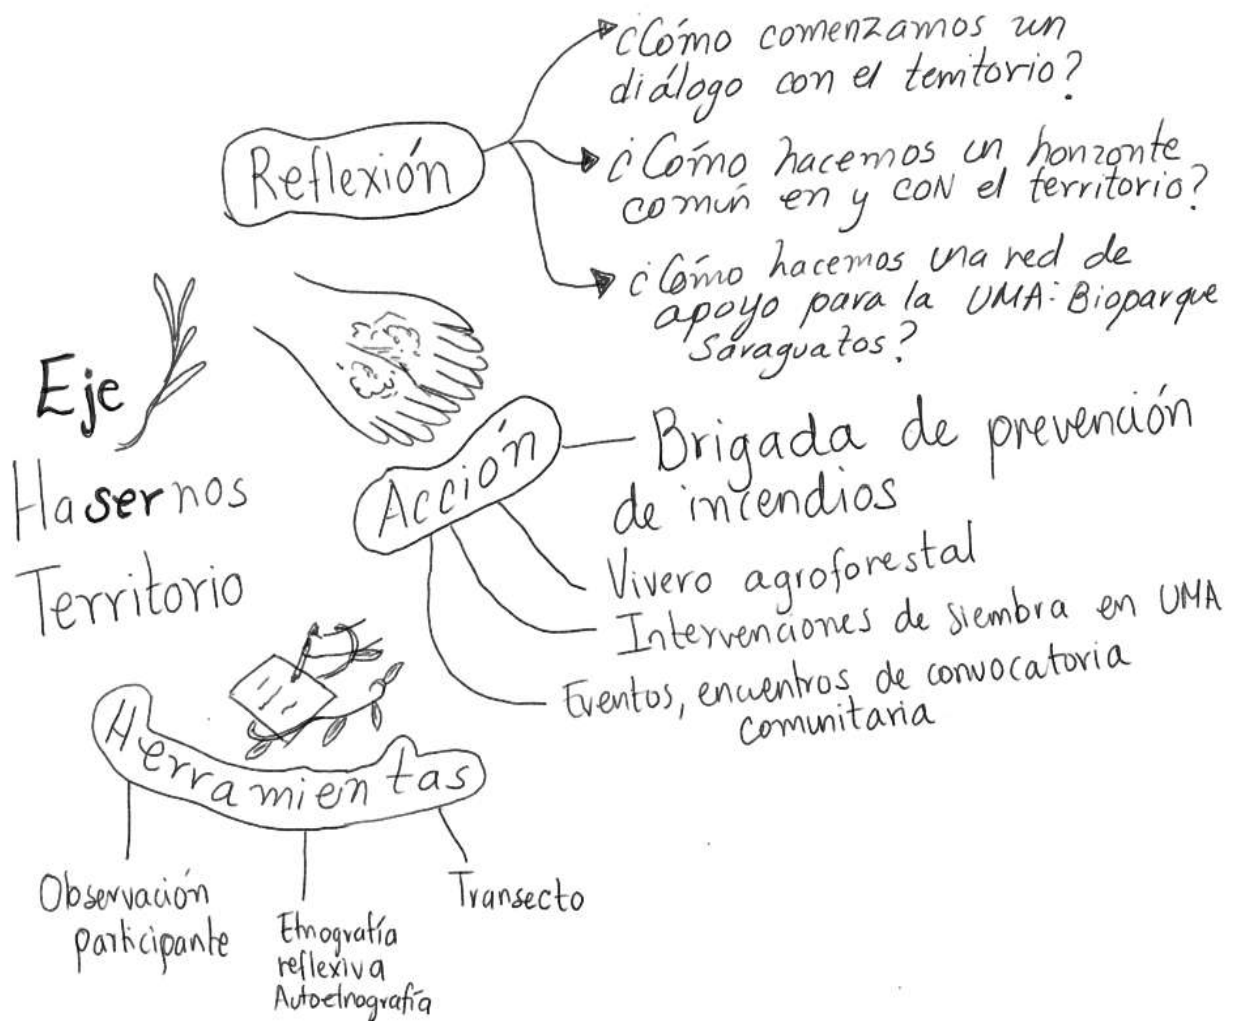 Reflexión
¿Cómo comenzamos un
diálogo con el territorio?
¿Cómo hacemos un horizonte
común en y CON el territorio?
¿Cómo hacemos una red de
apoyo para la UMA: Bioparque
Saraguatos?
Eje
Hasernos
Territorio
Acción
Brigada de prevención
de incendios
Vivero agroforestal
Intervenciones de siembra en UMA
Eventos, encuentros de convocatoria
comunitaria
Herramientas
Observación
participante
Etnografía
reflexiva
Autoetnografía
Transecto